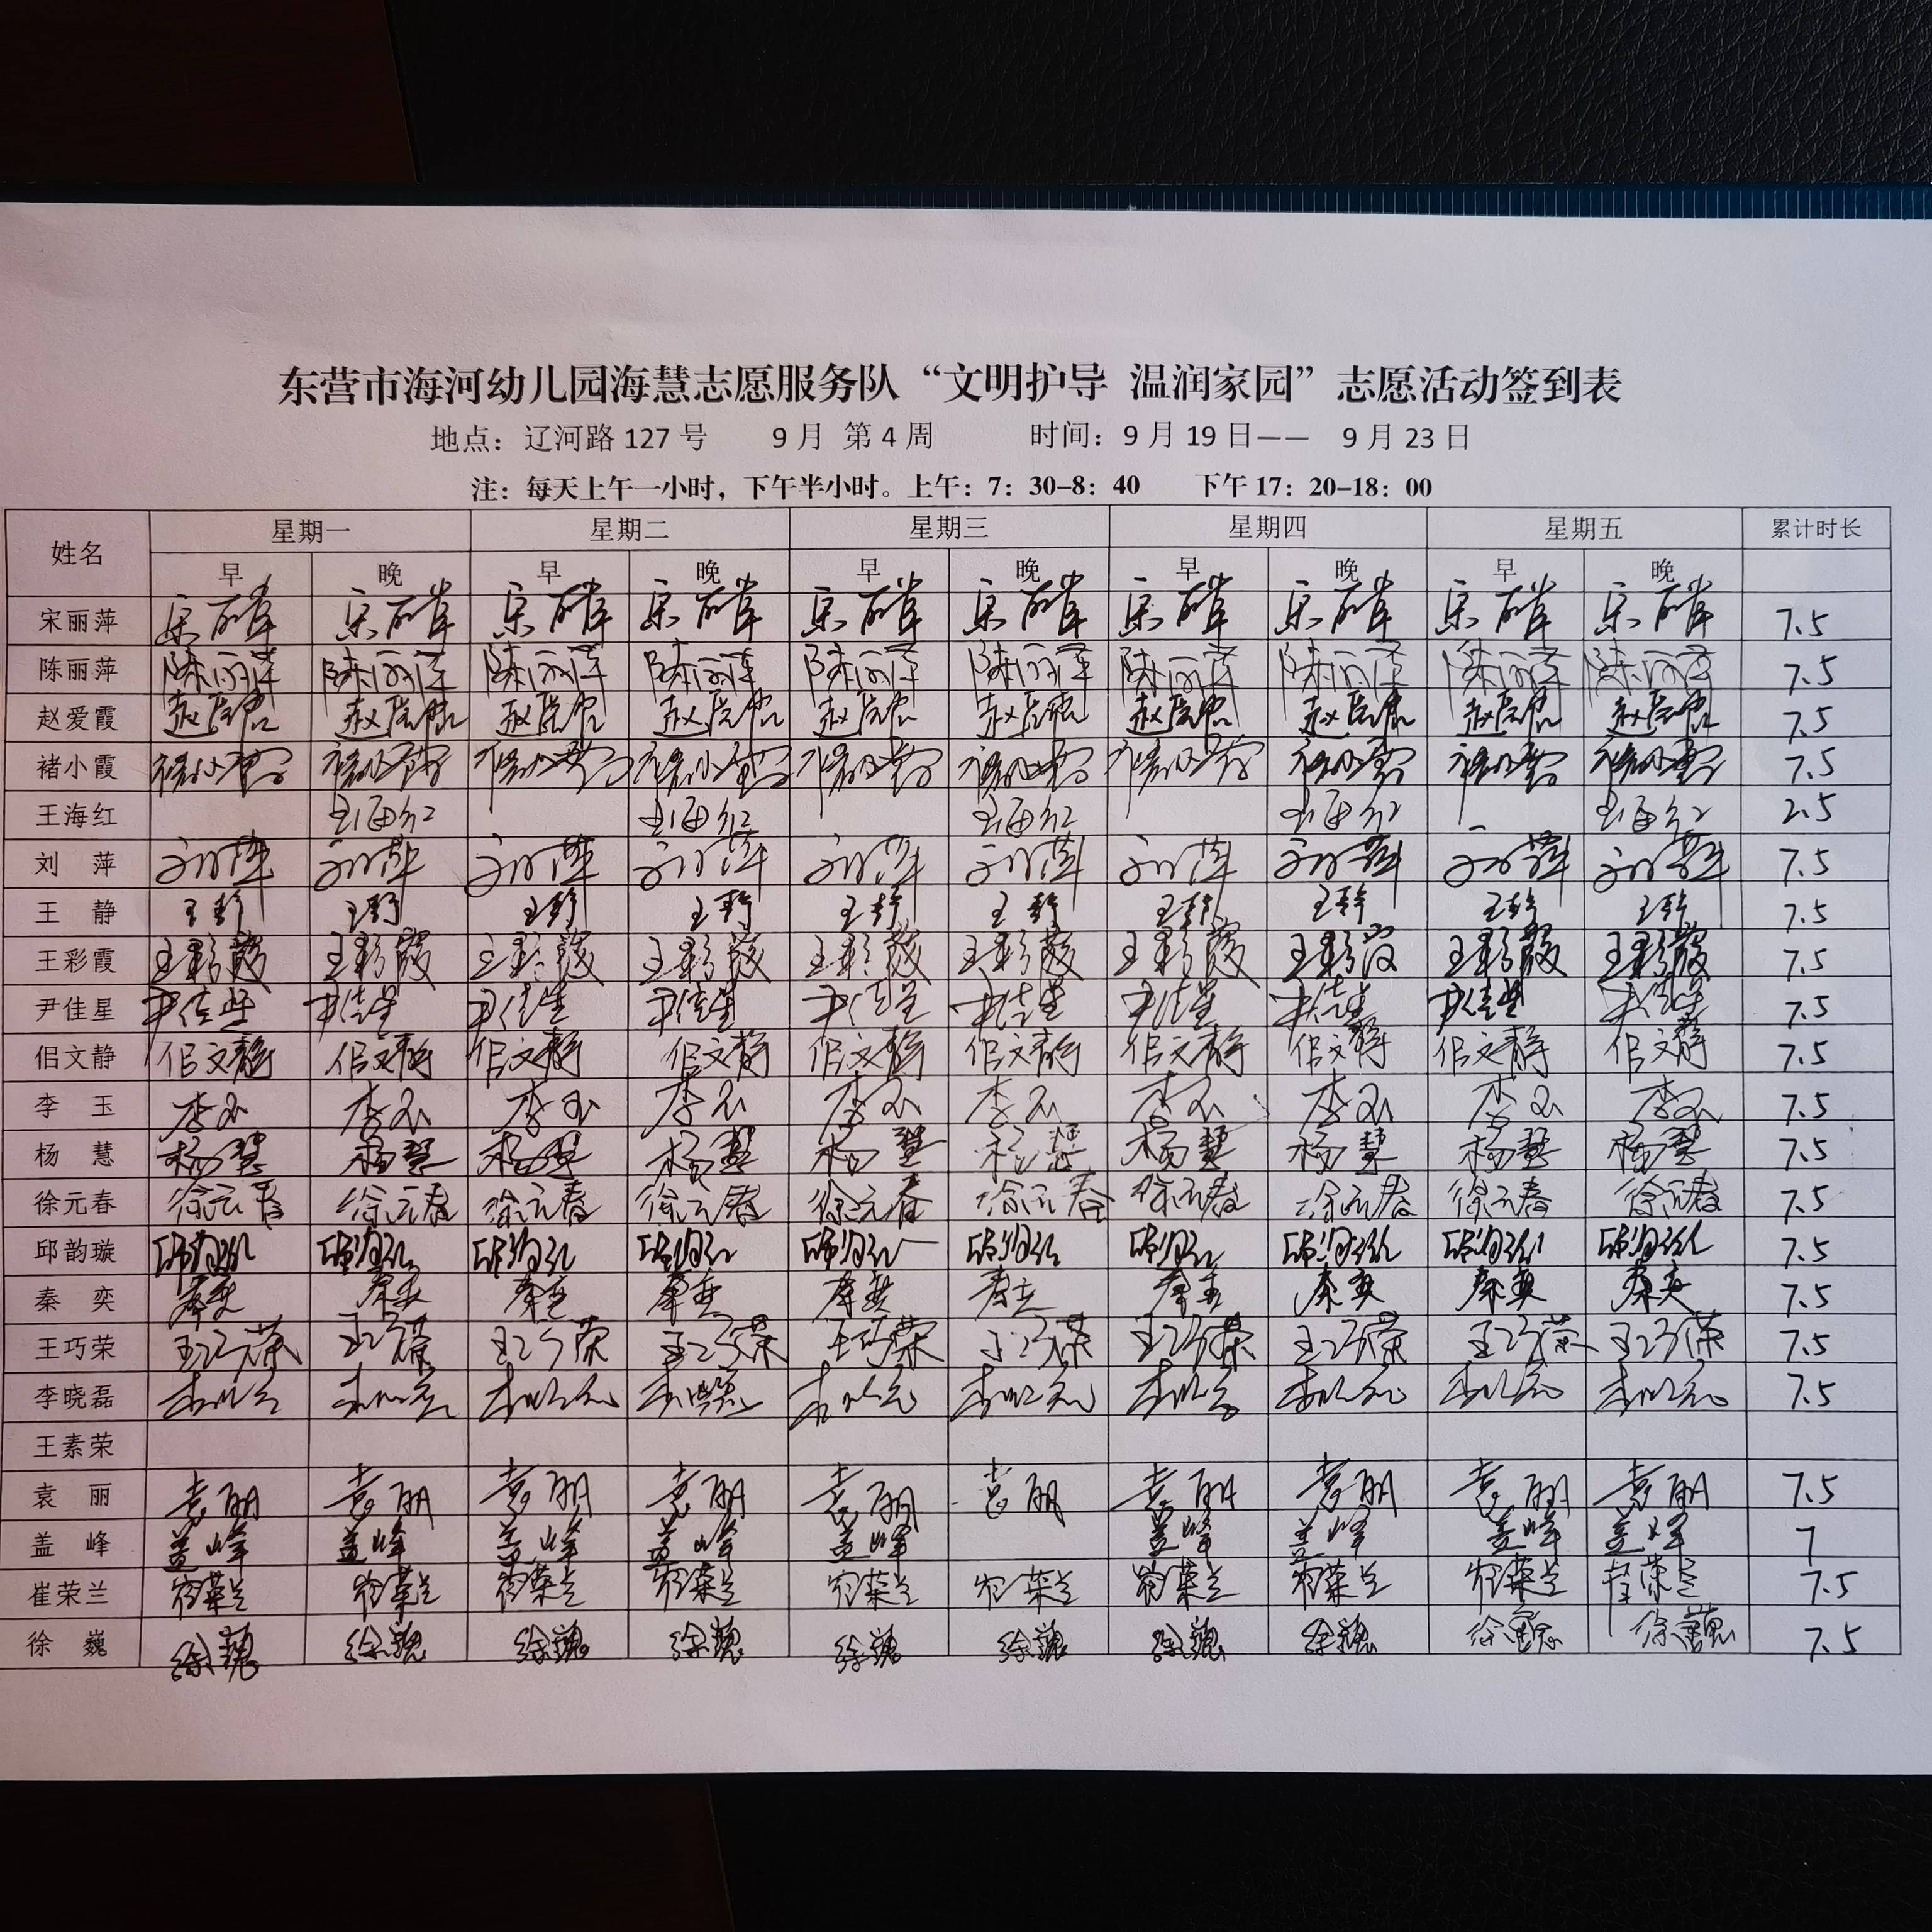 东营市海河幼儿园海慧志愿服务队“文明护导 温润家园”志愿活动签到表
地点：辽河路 127 号 9 月 第 4 周 时间：9 月 19 日—— 9 月 23 日
注：每天上午一小时，下午半小时。上午：7：30-8：40 下午 17：20-18：00
姓名 星期一 星期二 星期三 星期四 星期五 累计时长
早 晚 早 晚 早 晚 早 晚 早 晚
宋丽萍 宋丽萍 宋丽萍 宋丽萍 宋丽萍 宋丽萍 宋丽萍 宋丽萍 宋丽萍 宋丽萍 宋丽萍 7.5
陈丽萍 陈丽萍 陈丽萍 陈丽萍 陈丽萍 陈丽萍 陈丽萍 陈丽萍 陈丽萍 陈丽萍 陈丽萍 7.5
赵爱霞 赵爱霞 赵爱霞 赵爱霞 赵爱霞 赵爱霞 赵爱霞 赵爱霞 赵爱霞 赵爱霞 赵爱霞 7.5
褚小霞 褚小霞 褚小霞 褚小霞 褚小霞 褚小霞 褚小霞 褚小霞 褚小霞 褚小霞 褚小霞 7.5
王海红 王海红 王海红 王海红 王海红 王海红 2.5
刘 萍 刘萍 刘萍 刘萍 刘萍 刘萍 刘萍 刘萍 刘萍 刘萍 刘萍 7.5
王 静 王静 王静 王静 王静 王静 王静 王静 王静 王静 王静 7.5
王彩霞 王彩霞 王彩霞 王彩霞 王彩霞 王彩霞 王彩霞 王彩霞 王彩霞 王彩霞 王彩霞 7.5
尹佳星 尹佳星 尹佳星 尹佳星 尹佳星 尹佳星 尹佳星 尹佳星 尹佳星 尹佳星 尹佳星 7.5
佀文静 佀文静 佀文静 佀文静 佀文静 佀文静 佀文静 佀文静 佀文静 佀文静 佀文静 7.5
李 玉 李玉 李玉 李玉 李玉 李玉 李玉 李玉 李玉 李玉 李玉 7.5
杨 慧 杨慧 杨慧 杨慧 杨慧 杨慧 杨慧 杨慧 杨慧 杨慧 杨慧 7.5
徐元春 徐元春 徐元春 徐元春 徐元春 徐元春 徐元春 徐元春 徐元春 徐元春 徐元春 7.5
邱韵璇 邱韵璇 邱韵璇 邱韵璇 邱韵璇 邱韵璇 邱韵璇 邱韵璇 邱韵璇 邱韵璇 邱韵璇 7.5
秦 奕 秦奕 秦奕 秦奕 秦奕 秦奕 秦奕 秦奕 秦奕 秦奕 秦奕 7.5
王巧荣 王巧荣 王巧荣 王巧荣 王巧荣 王巧荣 王巧荣 王巧荣 王巧荣 王巧荣 王巧荣 7.5
李晓磊 李晓磊 李晓磊 李晓磊 李晓磊 李晓磊 李晓磊 李晓磊 李晓磊 李晓磊 李晓磊 7.5
王素荣
袁 丽 袁丽 袁丽 袁丽 袁丽 袁丽 袁丽 袁丽 袁丽 袁丽 袁丽 7.5
盖 峰 盖峰 盖峰 盖峰 盖峰 盖峰 盖峰 盖峰 盖峰 盖峰 7
崔荣兰 崔荣兰 崔荣兰 崔荣兰 崔荣兰 崔荣兰 崔荣兰 崔荣兰 崔荣兰 崔荣兰 崔荣兰 7.5
徐 巍 徐巍 徐巍 徐巍 徐巍 徐巍 徐巍 徐巍 徐巍 徐巍 徐巍 7.5